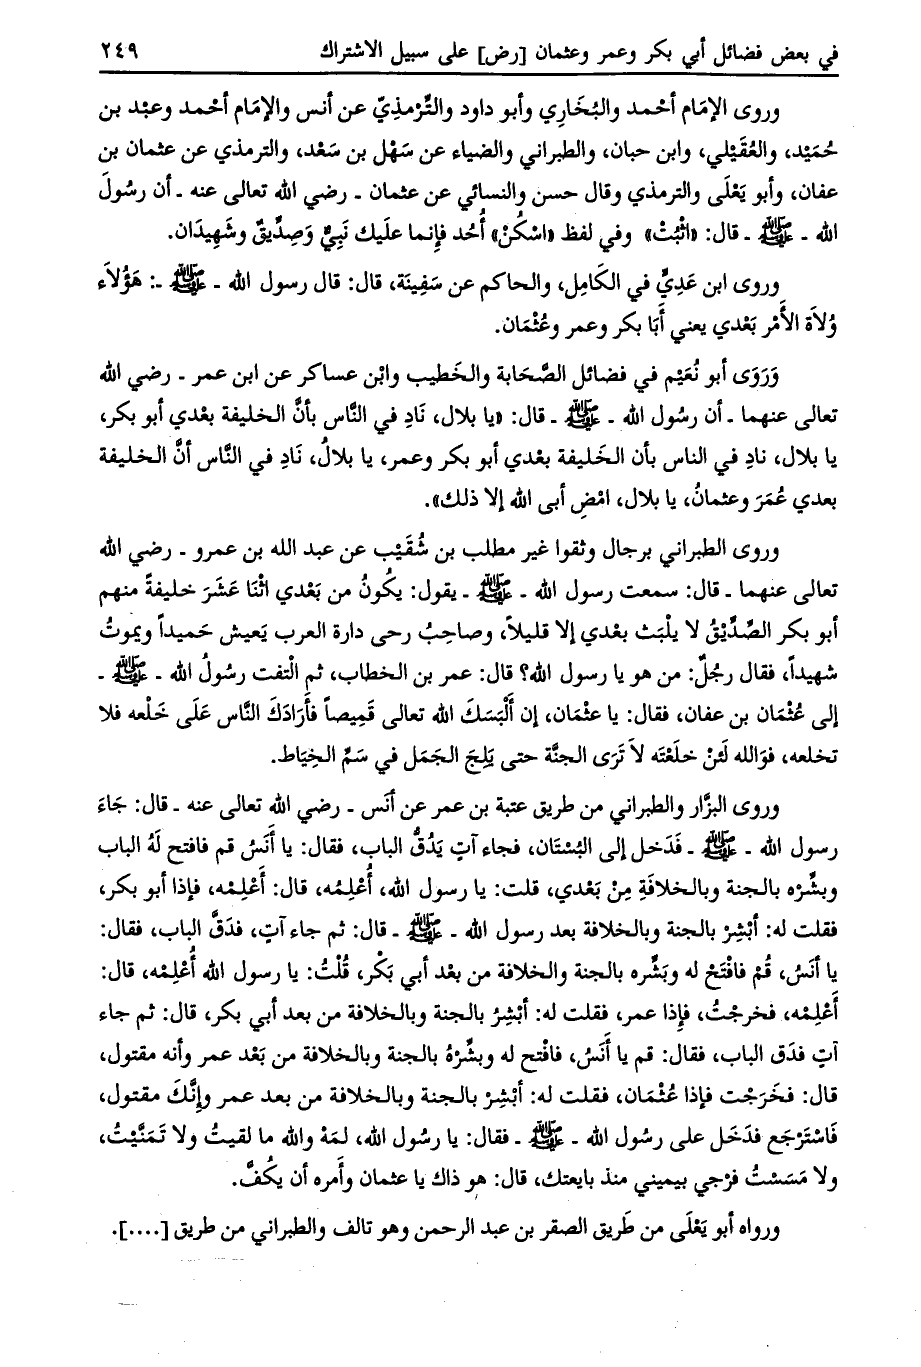 في بعض فضائل أبي بكر وعمر وعثمان [رض] على سبيل الاشتراك ٢٤٩
وروى الإمَام أحْمد والبُخَاري وأبو داود والتِّرْمذيّ عن أنس والإمَام أحْمد وعبْد بن
حُمَيْد، والعُقَيْلي، وابن حبان، والطبراني والضياء عن سَهْل بن سَعْد، والترمذي عن عثمان بن
عفان، وأبو يَعْلَى والترمذي وقال حسن والنسائي عن عثمان ـ رضي الله تعالى عنه ـ أن رسُولَ
الله ـ ﷺ ـ قال: «اثْبُتْ» وفي لفظ «اسْكُنْ» أُحُد فإنما علَيك نَبِيٌّ وَصِدِّيقٌ وشَهِيدَان.
وروى ابن عَدِيٍّ في الكَامِل، والحاكم عن سَفِينَة، قال: قال رسول الله ـ ﷺ ـ: هَؤُلاَء
وُلاَة الأَمْر بَعْدي يعني أَبَا بكر وعمر وعُثْمَان.
وَرَوَى أبو نُعَيْم في فضائل الصَّحَابة والخَطيب وابْن عساكر عن ابن عمر ـ رضي الله
تعالى عنهما ـ أن رسُول الله ـ ﷺ ـ قال: «يا بلال، نَادِ في النَّاس بأنَّ الخليفة بعْدي أبو بكر،
يا بلال، نادِ في الناس بأن الخَليفة بعْدي أبو بكر وعمر، يا بلالُ، نَادِ في النَّاس أنَّ الخليفة
بعدي عُمَرَ وعثمانُ، يا بلال، امْضِ أبى الله إلا ذلك».
وروى الطبراني برجال وثقوا غير مطلب بن شُعَيْب عن عبد الله بن عمرو ـ رضي الله
تعالى عنهما ـ قال: سمعت رسول الله ـ ﷺ ـ يقول: يكُونُ من بَعْدي اثْنَا عَشَرَ خليفةً منهم
أبو بكر الصِّدِّيْقُ لا يلْبَث بعْدي إلا قليلاً، وصاحِبُ رحى دارة العرب يَعيش حَميداً ويموتُ
شهيداً، فقال رجُلٌ: من هو يا رسول الله؟ قال: عمر بن الخطاب، ثم الْتفت رسُولُ الله ـ ﷺ ـ
إلى عُثْمَان بن عفان، فقال: يا عثْمَان، إن أَلْبَسَكَ الله تعالى قَمِيصاً فأَرَادَكَ النَّاس عَلَى خَلْعه فلا
تخلعه، فوَالله لَئنْ خلَعْتَه لاَ تَرَى الجنَّة حتى يَلِجَ الجَمَل في سَمِّ الخِيَاط.
وروى البزَّار والطبراني من طريق عتبة بن عمر عن أنَس ـ رضي الله تعالى عنه ـ قال: جَاءَ
رسول الله ـ ﷺ ـ فَدَخل إلى البُسْتَان، فجاء آتٍ يَدُقُّ الباب، فقال: يا أَنَسُ قم فافتح لَهُ الباب
وبشِّرْه بالجنة وبالخلافَةِ مِنْ بَعْدي، قلت: يا رسول الله، أُعْلِمُه، قال: أَعْلِمْه، فإذا أبو بكر،
فقلت له: أبْشِرْ بالجنة وبالخلافة بعد رسول الله ـ ﷺ ـ قال: ثم جاء آتٍ، فدَقَّ الباب، فقال:
يا أنَسُ، قُمْ فافْتَحْ له وبَشِّره بالجنة والخلافة من بعْد أبي بَكْر، قُلْتُ: يا رسول الله أُعْلِمُه، قال:
أَعْلِمْه، فخرجْتُ، فإذا عمر، فقلت له: أبْشِرْ بالجنة وبالخلافة من بعد أبي بكر، قال: ثم جاء
آتٍ فدَق الباب، فقال: قم يا أَنَسُ، فافْتح له وبشِّرْهُ بالجنة وبالخلافة من بَعْد عمر وأنه مقتول،
قال: فخَرَجْت فإذا عُثْمَان، فقلت له: أبْشِرْ بالجنة وبالخلافة من بعد عمر وإنَّكَ مقتول،
فَاسْتَرْجَع فدَخَل على رسُول الله ـ ﷺ ـ فقال: يا رسُول الله، لمَهْ والله ما لقيتُ ولا تَمَنَّيْتُ،
ولا مَسَسْتُ فرْجي بيميني منذ بايعتك، قال: هو ذاك يا عثمان وأمره أن يكُفَّ.
ورواه أبو يَعْلَى من طَريق الصقر بن عبد الرحمن وهو تالف والطبراني من طريق [....].